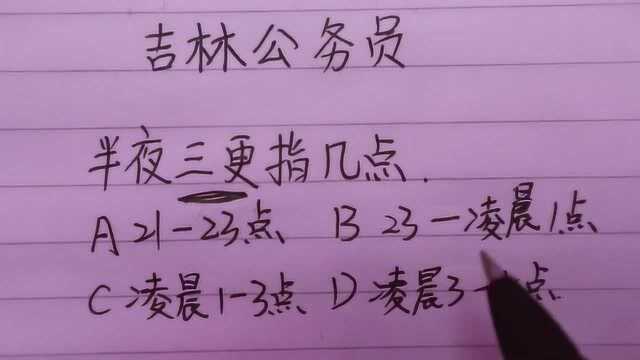 吉林公务员
半夜三更指几点.
A 21-23点 B 23-凌晨1点
C 凌晨1-3点 D 凌晨3- 点